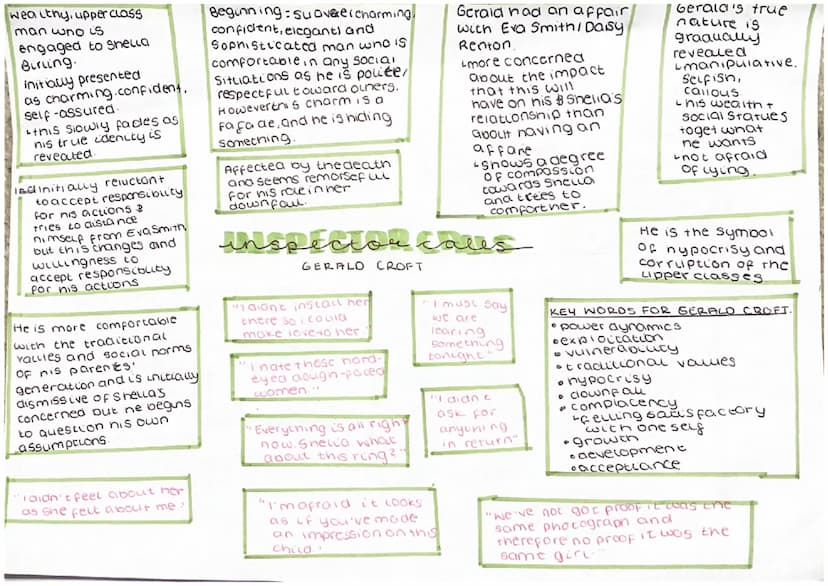 Wealthy, upper class
man who is
engaged to Sheila
Birling.
Initially presented
as charming, confident,
self-assured.
↳this slowly fades as
his true identity is
revealed.
Beginning = suave, charming,
confident, elegant and
sophisticated man who is
comfortable in any social
situations as he is polite/
respectful toward others.
However this charm is a
façade, and he is hiding
something.
Gerald had an affair
with Eva Smith/Daisy
Renton.
↳more concerned
about the impact
that this will
have on his & Sheila's
relationship than
about having an
affare
↳shows a degree
of compassion
towards Sheila
and tries to
comfort her.
Gerald's true
nature is
gradually
revealed
↳manipulative,
selfish,
callous
↳his wealth +
social statues
to get what
he wants
↳not afraid
of lying.
Affected by the death
and seems remorseful
for his role in her
downfall.
initially reluctant
to accept responsibility
for his actions &
tries to distance
himself from Eva Smith
but this changes and
willingness to
accept responsibility
for his actions
INSPECTOR CALLS
GERALD CROFT
He is the symbol
of hypocrisy and
corruption of the
upper classes
He is more comfortable
with the traditional
values and social norms
of his parents'
generation and is initially
dismissive of Sheila's
concerned but he begins
to question his own
assumptions.
"I didn't install her
there so i could
make love to her"
"I hate these hard-
eyed dough-faced
women."
"Everything is all right
now Sheila what
about this ring?"
"I must say
we are
learing
something
tonight"
"I didn't
ask for
anything
in return"
KEY WORDS FOR GERALD CROFT.
•power dynamics
•exploitation
•vulnerability
•traditional values
•hypocrisy
•downfall
•complacency
↳felling satisfactory
with oneself
•growth
•development
•acceptance
"I didn't feel about her
as she felt about me!
"I'm afraid it looks
as if you've made
an impression on this
child."
"We've not got proof it was the
same photograph and
therefore no proof it was the
same girl."